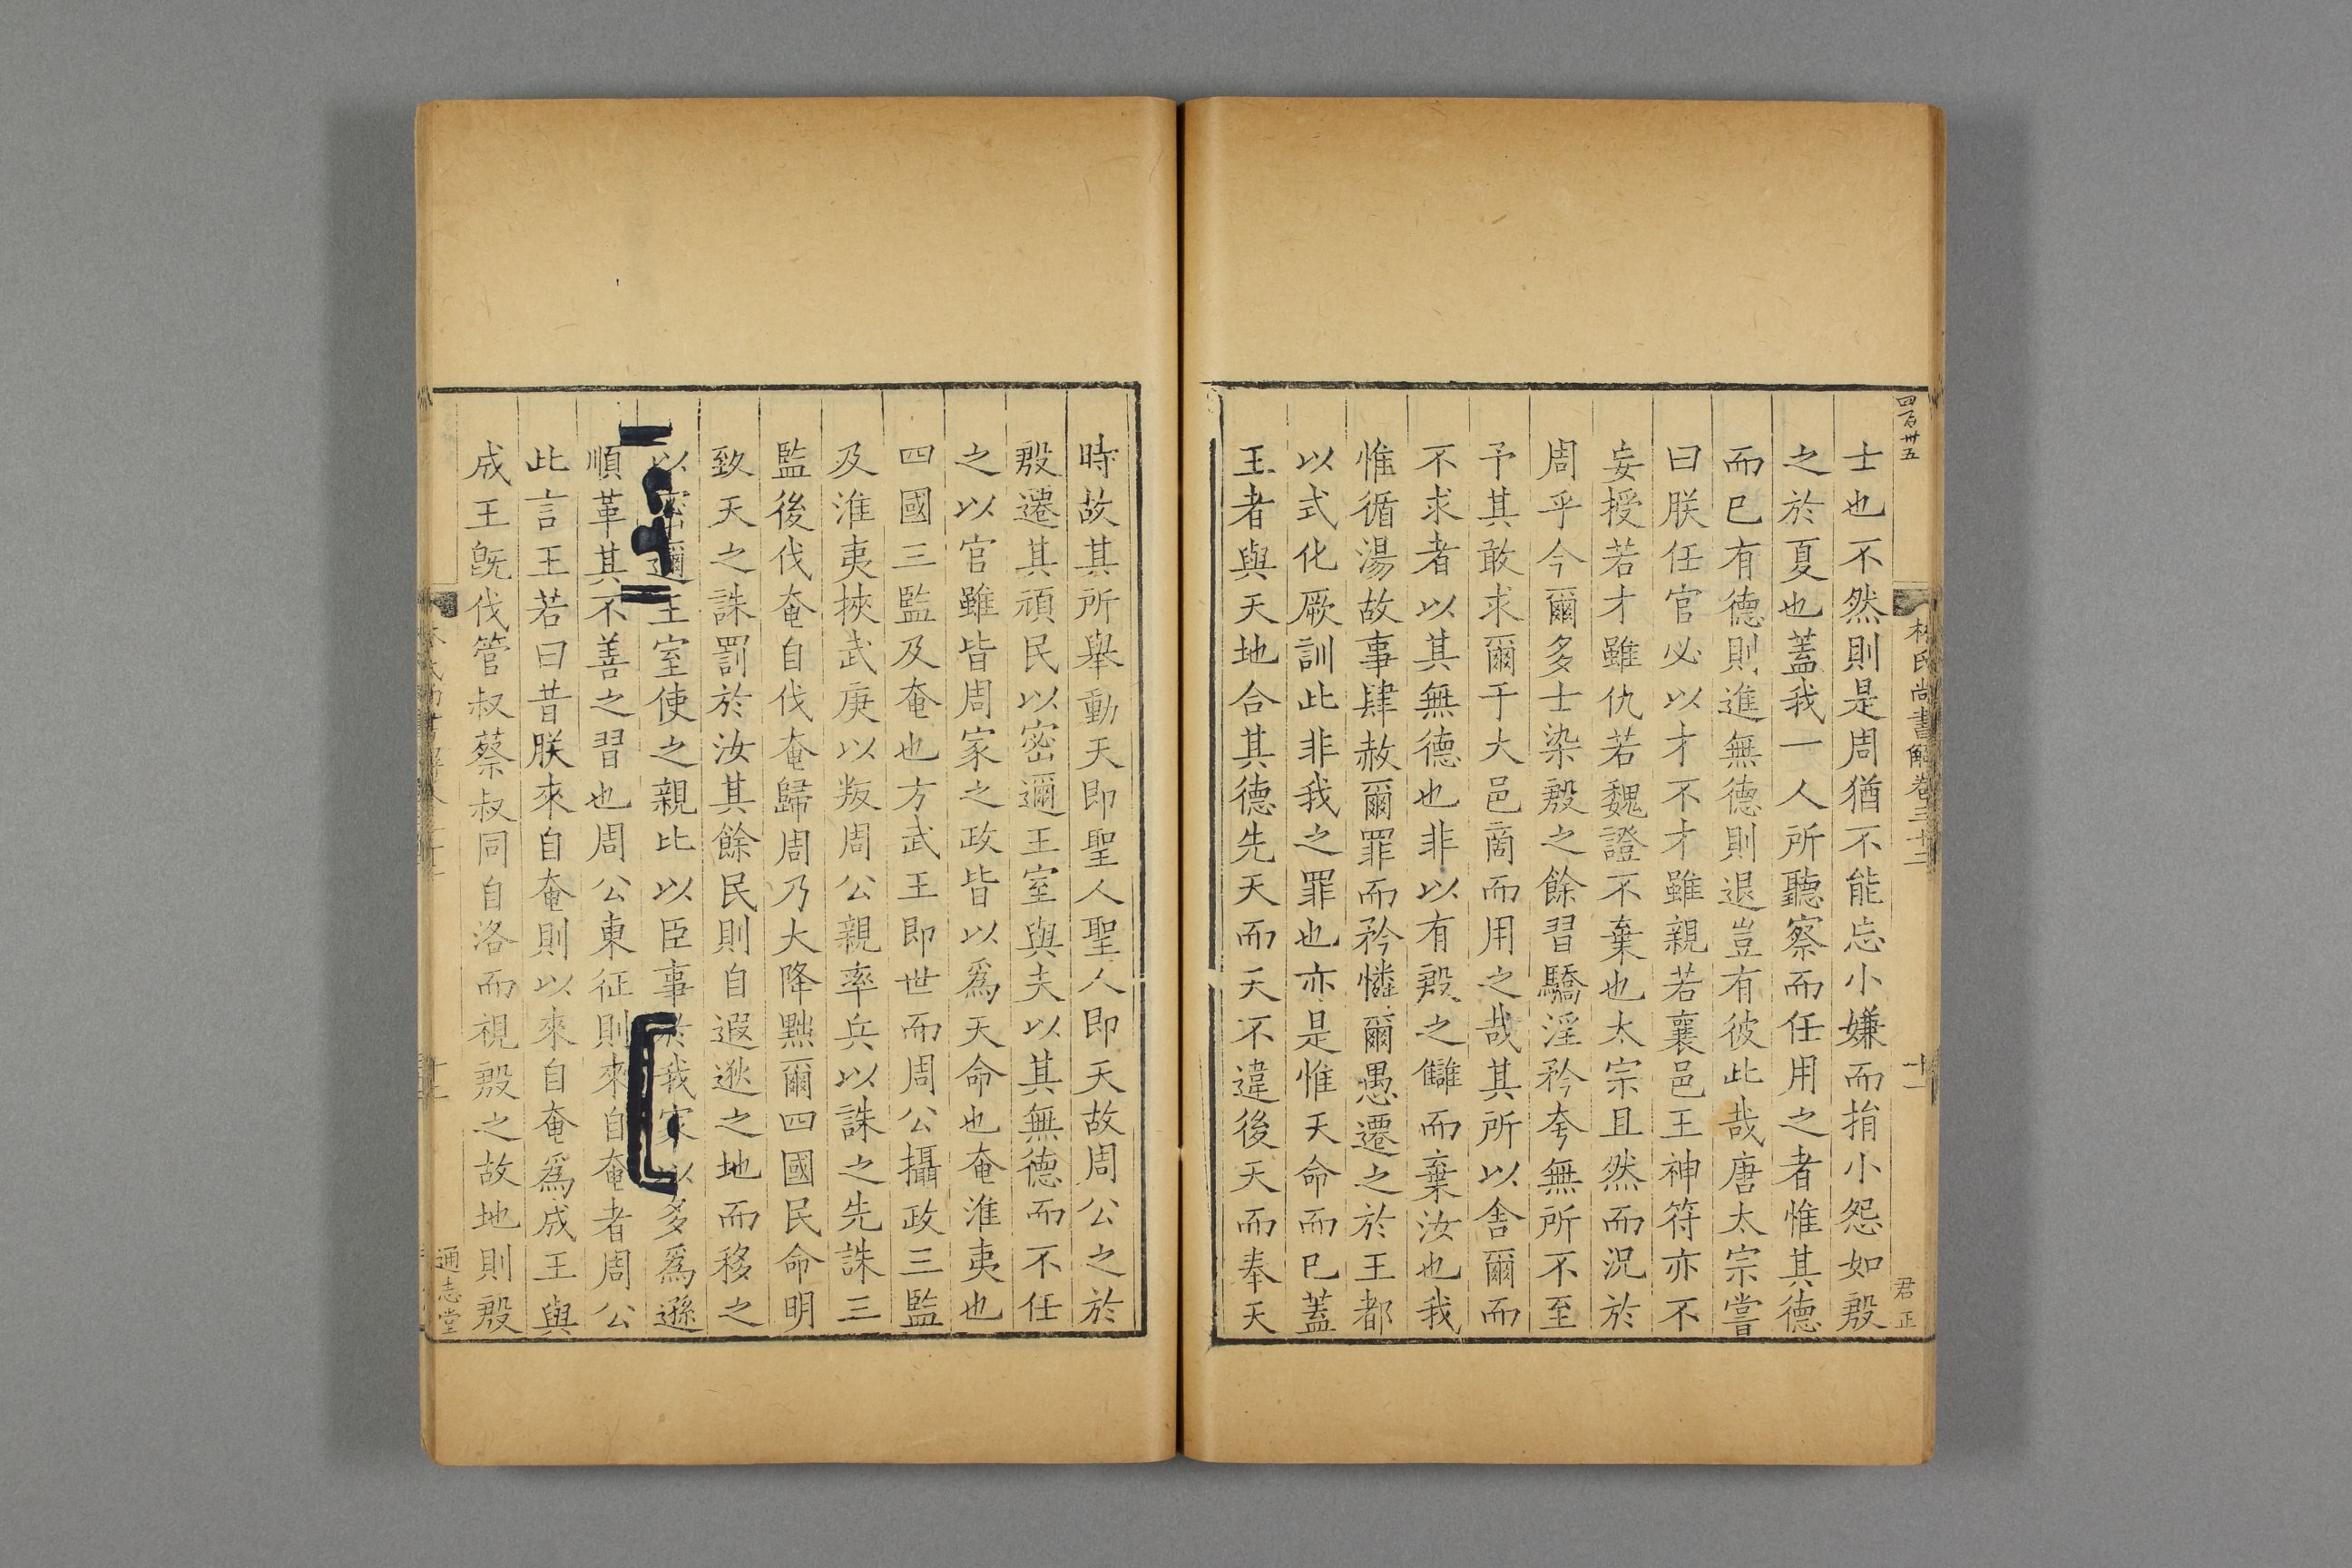 四百卅五
林氏尚書解卷三十二
十一
君正
士也不然則是周猶不能忘小嫌而捐小怨如殷
之於夏也蓋我一人所聽察而任用之者惟其德
而已有德則進無德則退豈有彼此哉唐太宗嘗
曰朕任官必以才不才雖親若襄邑王神符亦不
妄授若才雖仇若魏證不棄也太宗且然而況於
周乎今爾多士染殷之餘習驕淫矜夸無所不至
予其敢求爾于大邑商而用之哉其所以舍爾而
不求者以其無德也非以有殷之讎而棄汝也我
惟循湯故事肆赦爾罪而矜憐爾愚遷之於王都
以式化厥訓此非我之罪也亦是惟天命而已蓋
王者與天地合其德先天而天不違後天而奉天
時故其所舉動天即聖人聖人即天故周公之於
殷遷其頑民以密邇王室與夫以其無德而不任
之以官雖皆周家之政皆以為天命也奄淮夷也
四國三監及奄也方武王即世而周公攝政三監
及淮夷挾武庚以叛周公親率兵以誅之先誅三
監後伐奄自伐奄歸周乃大降黜爾四國民命明
致天之誅罰於汝其餘民則自遐逖之地而移之
以密邇王室使之親比以臣事於我家以多為遜
順革其不善之習也周公東征則來自奄者周公
此言王若曰昔朕來自奄則以來自奄為成王與
成王既伐管叔蔡叔同自洛而視殷之故地則殷
通志堂